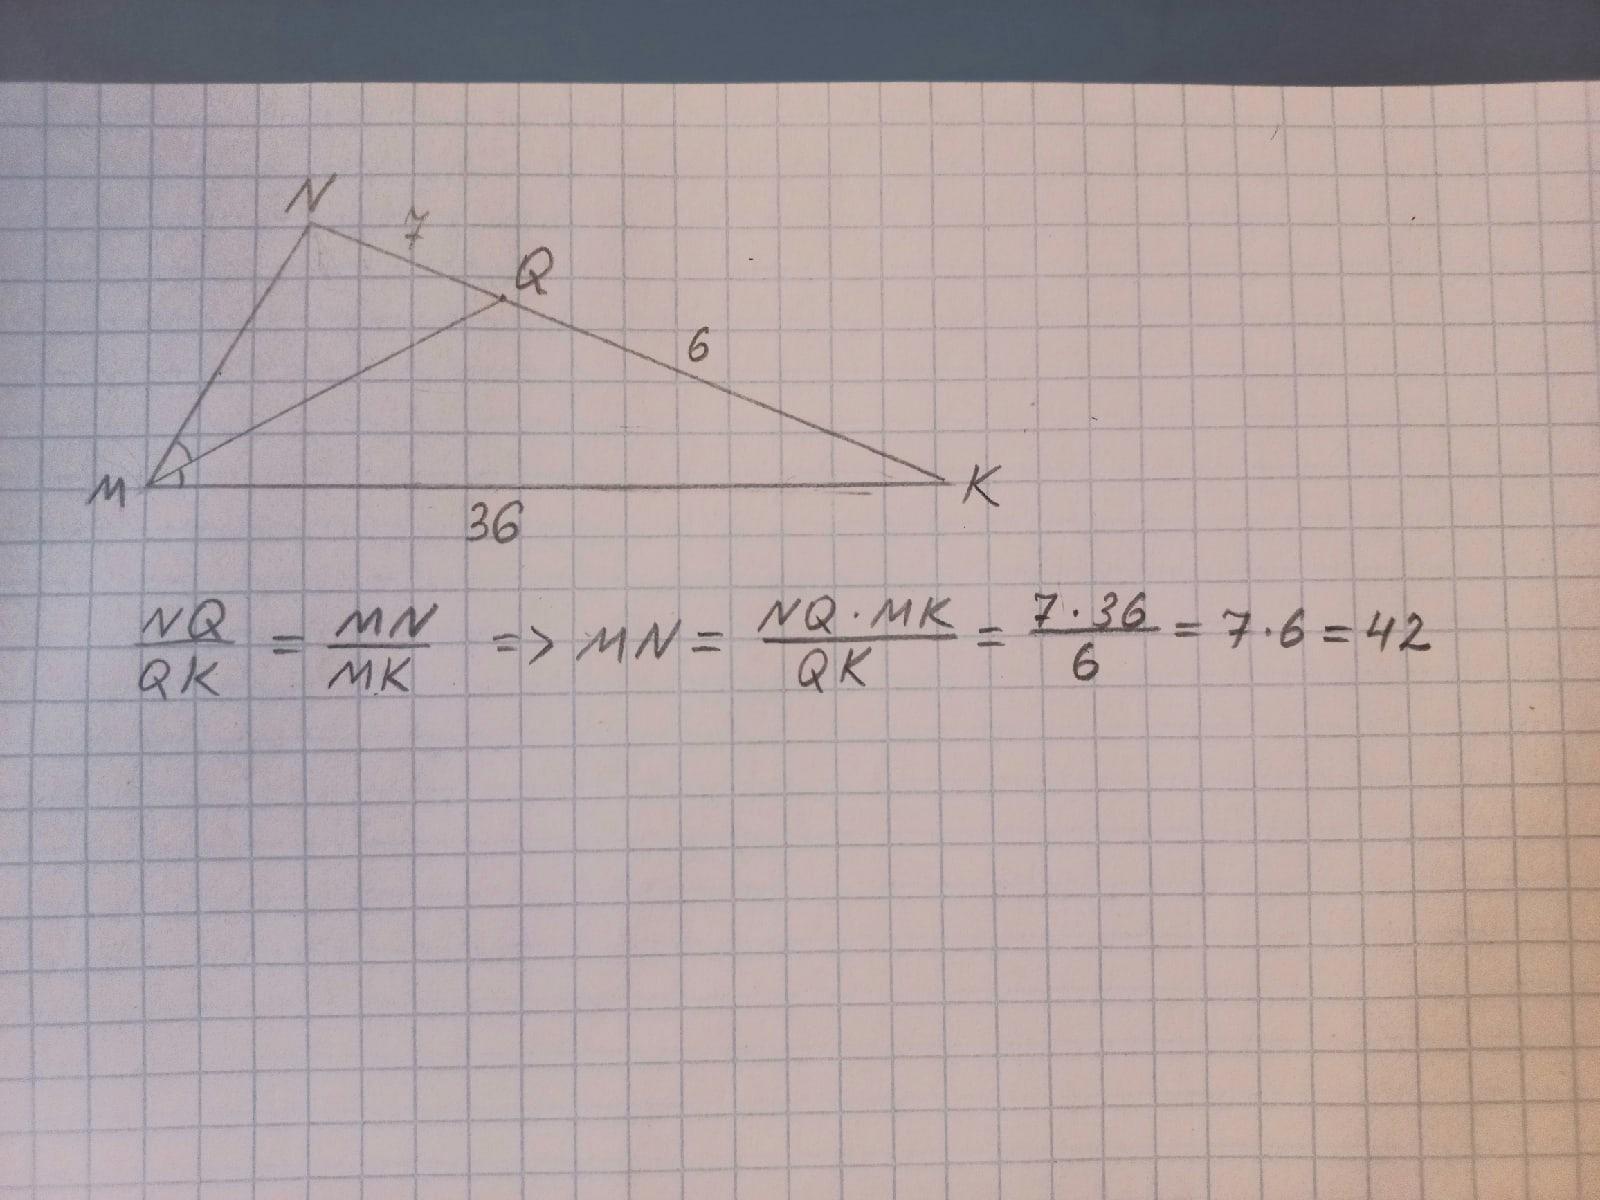 N
7
Q
6
M
K
36
NQ/QK = MN/MK => MN = NQ·MK/QK = 7·36/6 = 7·6 = 42